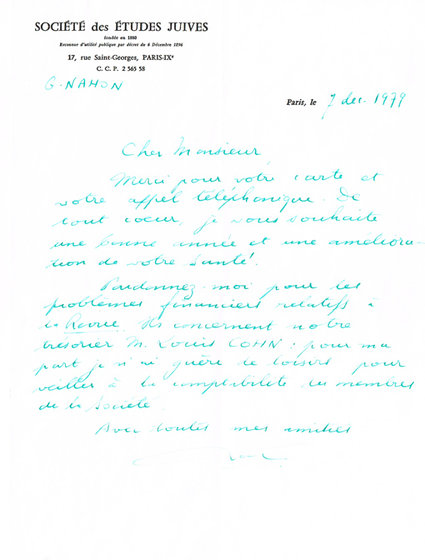 SOCIÉTÉ des ÉTUDES JUIVES
fondée en 1880
Reconnue d'utilité publique par décret du 6 Décembre 1896
17, rue Saint-Georges, PARIS-IXe
C. C. P. 2 565 58
G. NAHON
Paris, le 7 dec. 1979
Cher Monsieur,
Merci pour votre carte et
votre appel téléphonique. De
tout coeur, je vous souhaite
une bonne année et une améliora-
tion de votre santé.
Pardonnez-moi pour les
problèmes financiers relatifs à
la Revue. Ils concernent notre
trésorier M. Louis COHN : pour ma
part je n'ai guère le loisirs pour
veiller à la comptabilité des membres
de la Société.
Avec toutes mes amitiés